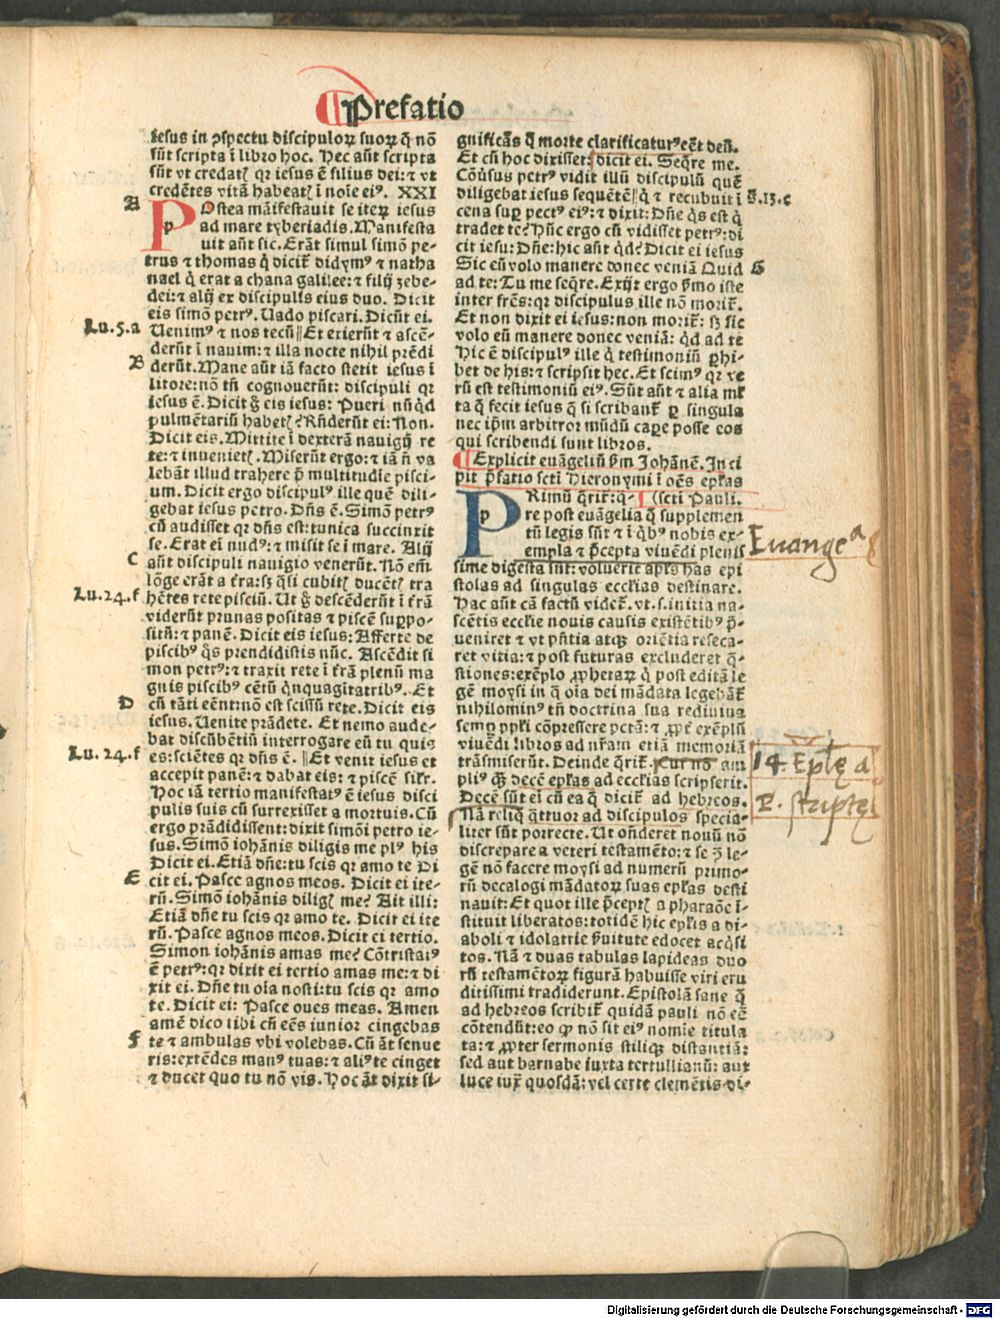 Prefatio
iesus in ↄspectu discipuloꝝ suoꝝ q̄ nō
sūt scripta ī libro hoc. Hec aūt scripta
sūt vt credatꝭ qꝛ iesus ē filius dei: ⁊ vt
credētes vitā habeatꝭ ī noīe eiꝰ. XXI
A
POstea māifestauit se iteꝝ iesus
p
ad mare tyberiadis. Manifesta
uit aūt sic. Erāt simul simō pe-
trus ⁊ thomas q̇ dicit̄ didymꝰ ⁊ natha
nael q̇ erat a chana galilee: ⁊ filij zebe-
dei: ⁊ alij ex discipulis eius duo. Dicit
eis simō petrꝰ. Uado piscari. Dicūt ei.
Lu.5.a
Uenimꝰ ⁊ nos tecū || Et exierūt ⁊ ascē-
derūt ī nauim: ⁊ illa nocte nihil prēdi
B
derūt. Mane aūt iā facto stetit iesus ī
litore: nō tn̄ cognouerūt: discipuli qꝛ
iesus ē. Dicit g̊ eis iesus: Pueri nūq̇d
pulmētariū habetꝭ? Rn̄derūt ei: Non.
Dicit eis. Mittite ī dexterā nauigij re
te: ⁊ inuenietꝭ. Miserūt ergo: ⁊ iā n̄ va
lebāt illud trahere p̄ multitudīe pisci-
um. Dicit ergo discipulꝰ ille quē dili-
gebat iesus petro. Dn̄s ē. Simō petrꝰ
cū audisset qꝛ dn̄s est: tunica succinxit
se. Erat ei nudꝰ: ⁊ misit se ī mare. Alij
C
aūt discipuli nauigio venerūt. Nō em̄
lōge erāt a t̄ra: sꝫ q̄si cubitꝭ ducētꝭ tra
Lu.24.f
hētes rete pisciū. Ut g̊ descēderūt ī t̄rā
viderūt prunas positas ⁊ piscē suppo-
sitū: ⁊ panē. Dicit eis iesus: Afferte de
piscibꝰ q̊s prendidistis nūc. Ascēdit si
mon petrꝰ: ⁊ traxit rete ī t̄rā plenū ma
gnis piscibꝰ cētū q̇nquagītatribꝰ. Et
D
cū tāti eēnt: nō est scissū rete. Dicit eis
iesus. Uenite prādete. Et nemo aude-
bat discūbētiū interrogare eū tu quis
Lu.24.f
es: sciētes qꝛ dn̄s ē. || Et venit iesus et
accepit panē: ⁊ dabat eis: ⁊ piscē sil̄r.
Hoc iā tertio manifestatꝰ ē iesus disci
pulis suis cū surrexisset a mortuis. Cū
ergo prādidissent: dixit simōi petro ie-
sus. Simō iohānis diligis me plꝰ his
Dicit ei. Etiā dn̄e: tu scis qꝛ amo te Di
E
cit ei. Pasce agnos meos. Dicit ei ite-
rū. Simō iohānis diligꝭ me? Ait illi:
Etiā dn̄e tu scis qꝛ amo te. Dicit ei ite
rū. Pasce agnos meos. Dicit ei tertio.
Simon iohānis amas me? Cōtristatꝰ
ē petrꝰ: qꝛ dixit ei tertio amas me: ⁊ di
xit ei. Dn̄e tu oīa nosti: tu scis qꝛ amo
te. Dicit ei: Pasce oues meas. Amen
amē dico tibi cū eēs iunior cingebas
F
te ⁊ ambulas vbi volebas. Cū āt senue
ris: extēdes manꝰ tuas: ⁊ aliꝰ te cinget
⁊ ducet quo tu nō vis. Hoc āt dixit si-
gnificās q̄ morte clarificaturꝰ eēt deū.
Et cū hoc dixisset: dicit ei. Seq̄re me.
Cōuersus petrꝰ vidit illū discipulū quē
diligebat iesus sequētē || q̇ ⁊ recubuit ī
S.13.c
cena sup̱ pectꝰ eiꝰ: ⁊ dixit: Dn̄e q̇s est q̇
tradet te? Hūc ergo cū vidisset petrꝰ: di
cit iesu: Dn̄e: hic aūt q̇d? Dicit ei iesus
Sic eū volo manere donec veniā Quid
G
ad te: Tu me seq̄re. Exijt ergo ẜmo iste
inter fr̄es: qꝛ discipulus ille nō morit̄.
Et non dixit ei iesus: non morit̄: sꝫ sic
volo eū manere donec veniā: q̇d ad te
Hic ē discipulꝰ ille q̇ testimoniū p̱hi-
bet de his: ⁊ scripsit hec. Et scimꝰ qꝛ ve
rū est testimoniū eiꝰ. Sūt aūt ⁊ alia ml̄
ta q̄ fecit iesus q̄ si scribant̄ p̱ singula
nec ip̄m arbitror mūdū cap̱e posse eos
qui scribendi sunt libros.
Explicit euāgeliū ẜm Johānē. Inci
pit p̄fatio scti Hieronymi ī oēs ep̄ļas
PRimū q̄rit̄: q̄- (scti Pauli.
p
re post euāgelia q̄ supplemen
tū legis sūt ⁊ ī q̇bꝰ nobis ex-
Euange a
empla ⁊ p̄cepta viuēdi plenis
sime digesta sūt: voluerit apľs has epi
stolas ad singulas eccľias destinare.
Hac aūt cā factū videt̄. vt.s.initia na-
scētis eccľie nouis causis existētibꝰ p̄-
ueniret ⁊ vt pn̄tia atqꝫ oriētia reseca-
ret vitia: ⁊ post futuras excluderet q̄-
stiones: exēplo ꝓphetaꝝ q̇ post editā le
gē moysi in q̄ oīa dei mādata legebāt̄
nihilominꝰ tn̄ doctrina sua rediuiua
semp̱ pp̄ľi cōpressere pctā: ⁊ ꝓpt̄ exēplū
viuēdi libros ad nr̄am etiā memoriā
trāsmiserūt. Deinde q̄rit̄. Cur nō am
14. Eptę a
pliꝰ qꝫ decē ep̄ľas ad eccľias scripserit.
P. striptę
Decē sūt ei cū ea q̄ dicit̄ ad hebreos.
Nā reliq̄ q̄ttuor ad discipulos specia-
liter sūt porrecte. Ut on̄deret nouū nō
discrepare a veteri testamēto: ⁊ se ꝯ le-
gē non facere moysi ad numerū primo-
rū decalogi mādatoꝝ suas ep̄ľas desti
nauit: Et quot ille p̄ceptꝭ a pharaōe ī-
stituit liberatos: totidē hic ep̄ľis a di-
aboli ⁊ idolatrie ẜuitute edocet acq̇si
tos. Nā ⁊ duas tabulas lapideas duo
rū testamētoꝝ figurā habuisse viri eru
ditissimi tradiderunt. Epistolā sane q̄
ad hebreos scribit̄ quidā pauli nō eē
cōtendūt: eo ꝙ nō sit eiꝰ nomīe titula
ta: ⁊ ꝓpter sermonis stiliqꝫ distantiā:
sed aut barnabe iuxta tertullianū: aut
luce iux̄ quosdā: vel certe clemētis di-
Digitalisierung gefördert durch die Deutsche Forschungsgemeinschaft - DFG